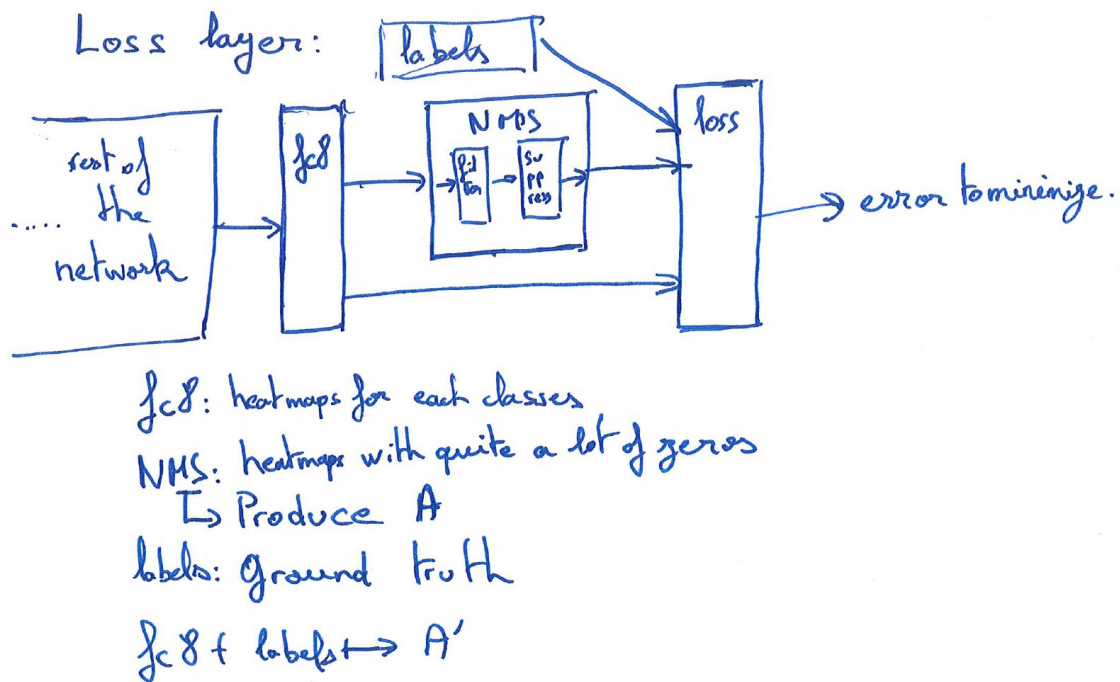 Loss layer:
labels
rest of
the
..... network
fc8
NMS
fil
ter
su
pp
ress
loss
error to minimize.
fc8: heatmaps for each classes
NMS: heatmaps with quite a lot of zeros
↳ Produce A
labels: ground truth
fc8 + labels ↦ A'